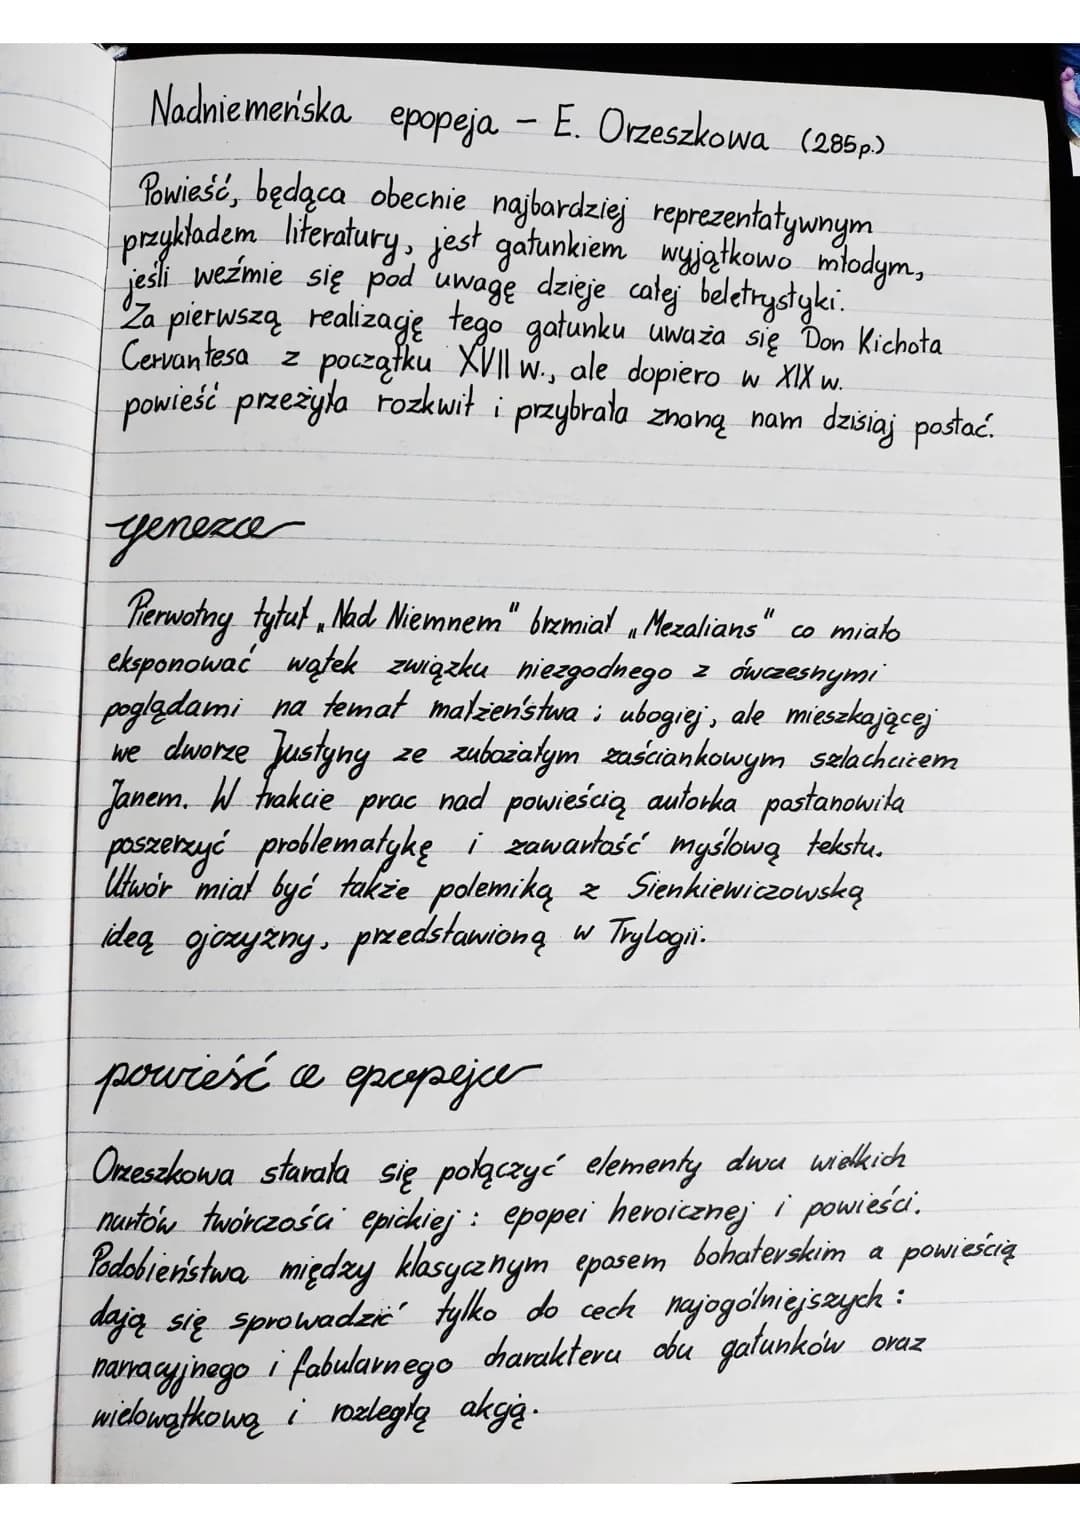 Nadniemeńska epopeja – E. Orzeszkowa (285p.)
Powieść, będąca obecnie najbardziej reprezentatywnym
przykładem literatury, jest gatunkiem wyjątkowo młodym,
jeśli weźmie się pod uwagę dzieje całej beletrystyki.
Za pierwszą realizację tego gatunku uważa się Don Kichota
Cervantesa z początku XVII w., ale dopiero w XIX w.
powieść przeżyła rozkwit i przybrała znaną nam dzisiaj postać.
geneza
Pierwotny tytuł „Nad Niemnem" brzmiał „Mezalians" co miało
eksponować wątek związku niezgodnego z ówczesnymi
poglądami na temat małżeństwa ; ubogiej, ale mieszkającej
we dworze Justyny ze zubożałym zaściankowym szlachcicem
Janem. W trakcie prac nad powieścią autorka postanowiła
poszerzyć problematykę i zawartość myślową tekstu.
Utwór miał być także polemiką z Sienkiewiczowską
ideą ojczyzny, przedstawioną w Trylogii.
powieść a epopeja
Orzeszkowa starała się połączyć elementy dwu wielkich
nurtów twórczości epickiej : epopei heroicznej i powieści.
Podobieństwa między klasycznym eposem bohaterskim a powieścią
dają się sprowadzić tylko do cech najogólniejszych :
narracyjnego i fabularnego charakteru obu gatunków oraz
wielowątkową i rozległą akcją.